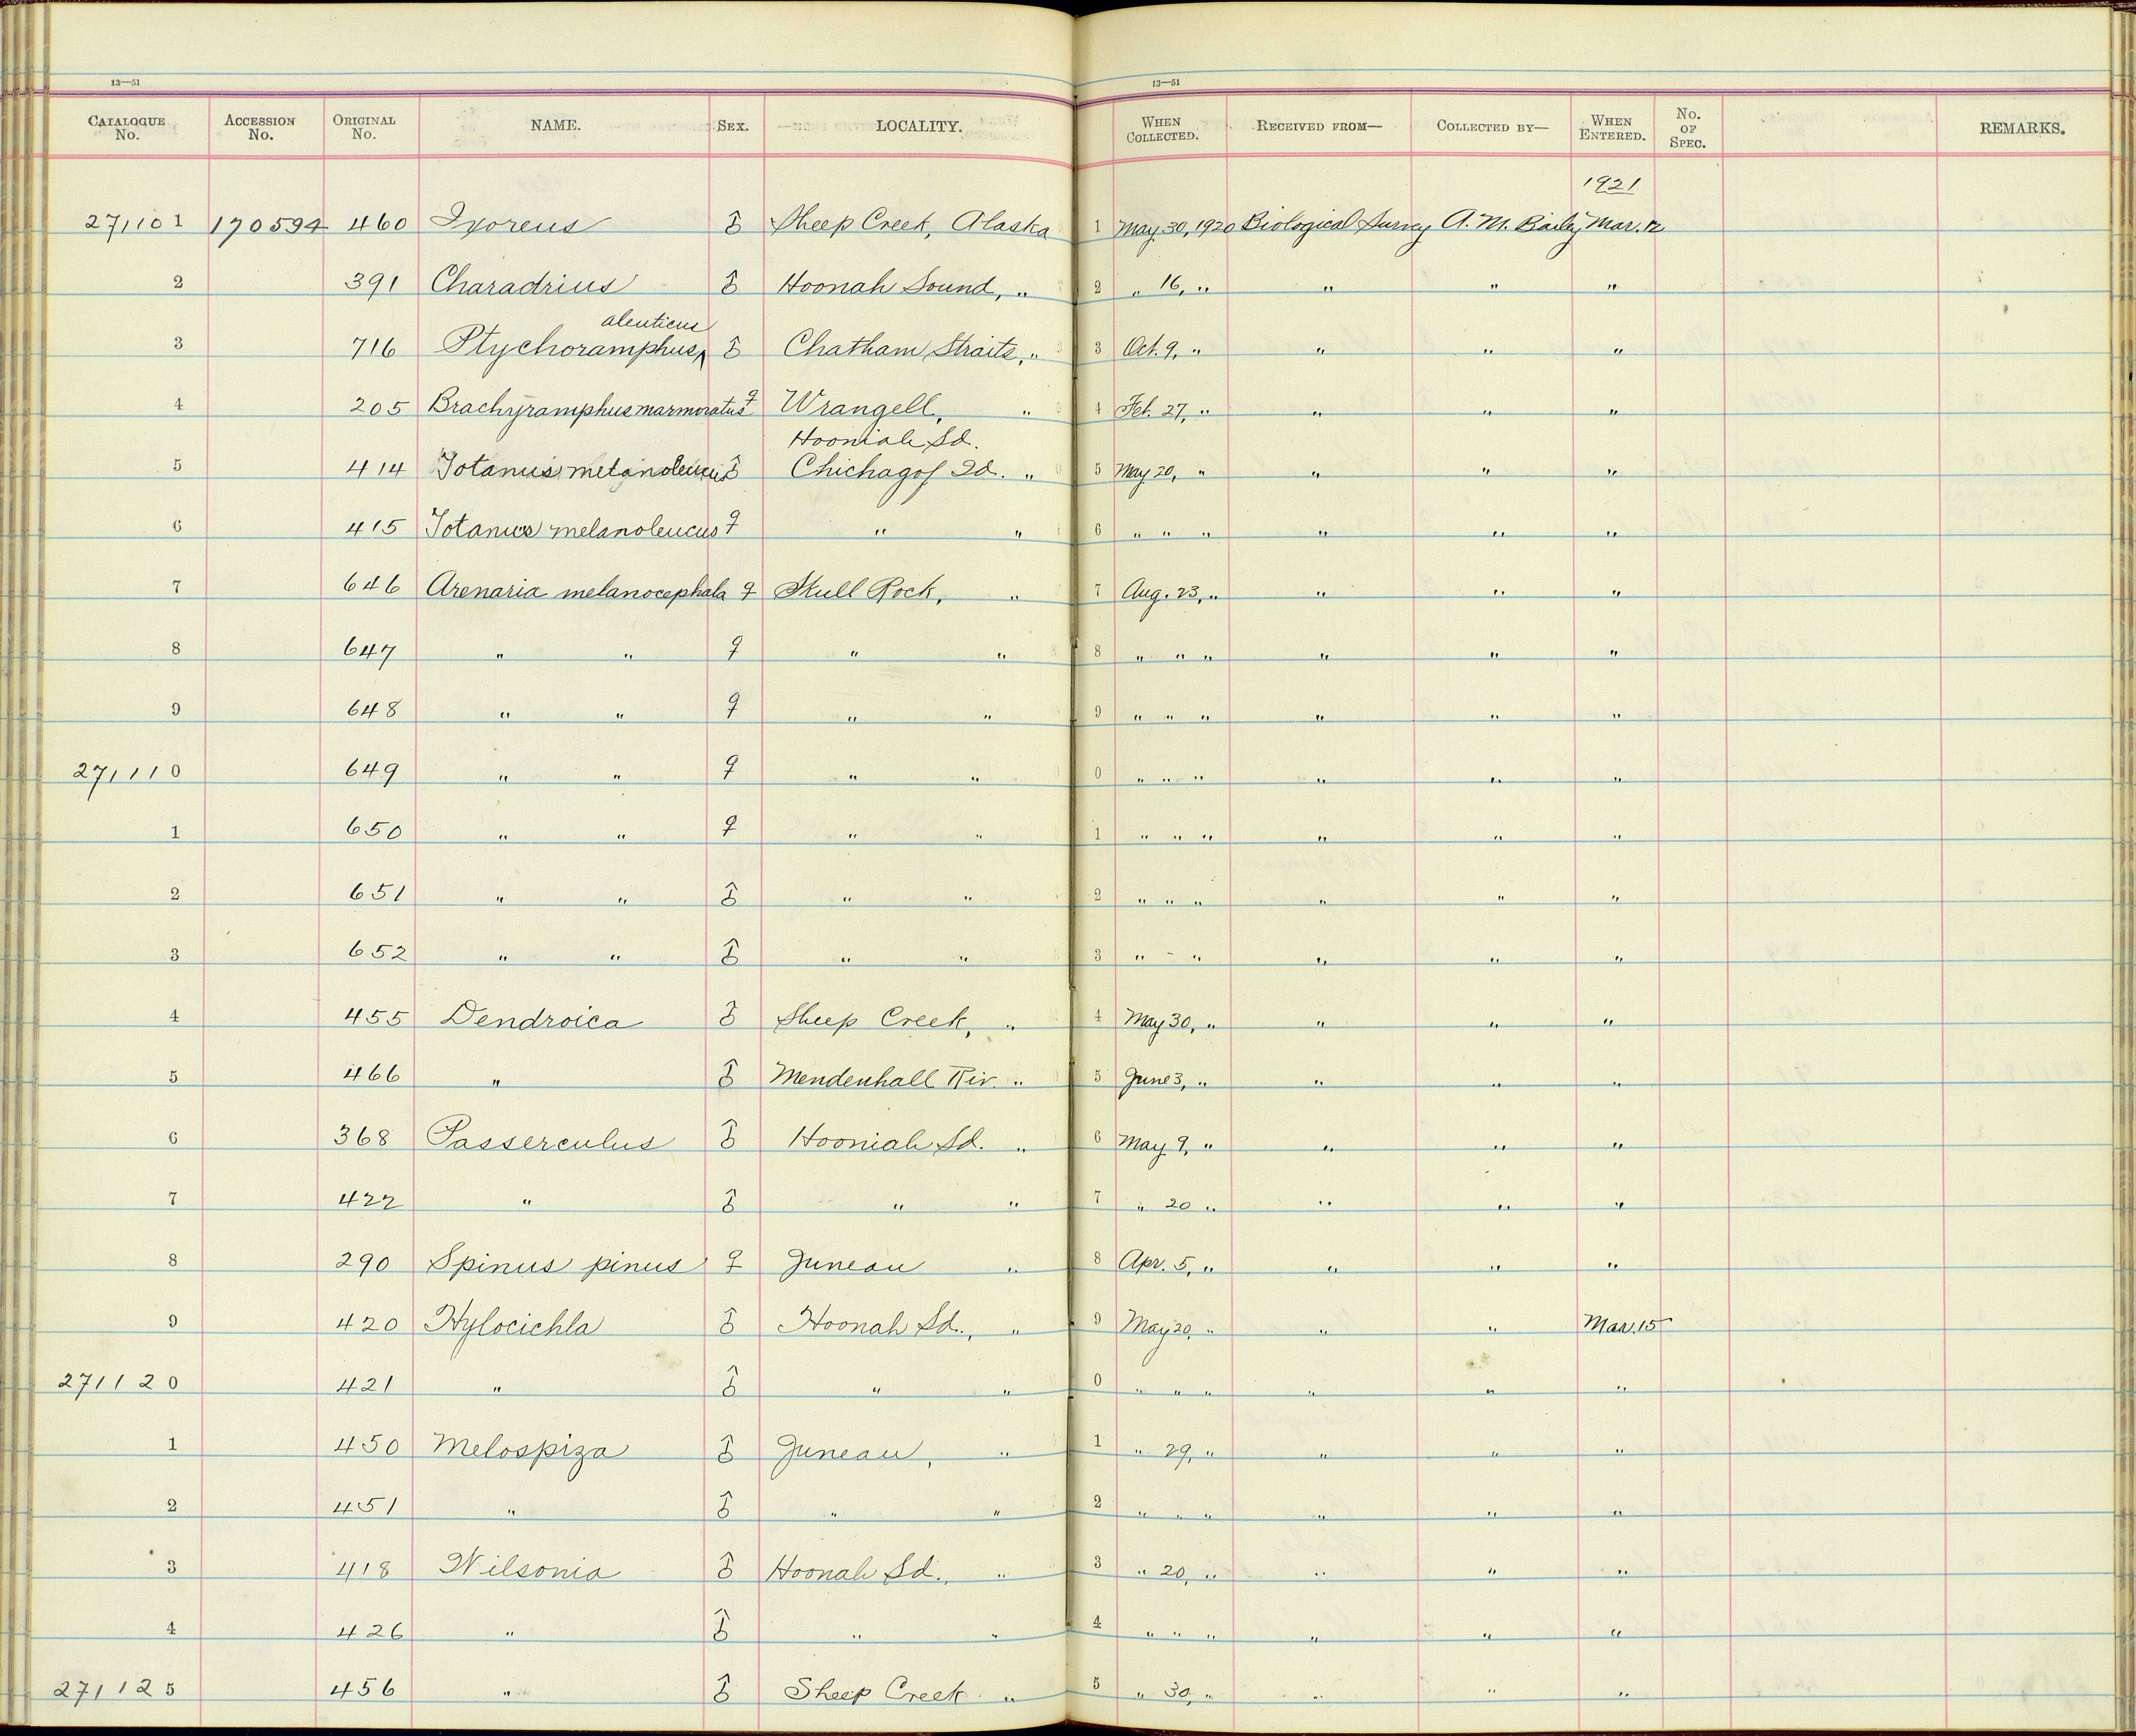 13—51 13—51
CATALOGUE No. ACCESSION No. ORIGINAL No. NAME. SEX. LOCALITY. WHEN COLLECTED. RECEIVED FROM— COLLECTED BY— WHEN ENTERED. No. OF SPEC. REMARKS.
1921
271101 170594 460 Ixoreus ♂ Sheep Creek, Alaska 1 May 30, 1920 Biological Survey A. M. Bailey Mar. 12
2 391 Charadrius ♂ Hoonah Sound, " 2 " 16, " " " "
aleuticus
3 716 Ptychoramphus ^ ♂ Chatham Straits, " 3 Oct. 9, " " " "
4 205 Brachyramphus marmoratus ♀ Wrangell, " 4 Feb. 27, " " " "
Hooniah Sd.
5 414 Totanus melanoleucus ♂ Chichagof Id. " 5 May 20, " " " "
6 415 Totanus melanoleucus ♀ " " 6 " " " " " "
7 646 Arenaria melanocephala ♀ Skull Rock, " 7 Aug. 23, " " " "
8 647 " " ♀ " " 8 " " " " " "
9 648 " " ♀ " " 9 " " " " " "
271110 649 " " ♀ " " 0 " " " " " "
1 650 " " ♀ " " 1 " " " " " "
2 651 " " ♂ " " 2 " " " " " "
3 652 " " ♂ " " 3 " " " " " "
4 455 Dendroica ♂ Sheep Creek, " 4 May 30, " " " "
5 466 " ♂ Mendenhall Riv. " 5 June 3, " " " "
6 368 Passerculus ♂ Hooniah Sd. " 6 May 9, " " " "
7 422 " ♂ " " 7 " 20 " " " "
8 290 Spinus pinus ♀ Juneau " 8 Apr. 5, " " " "
9 420 Hylocichla ♂ Hoonah Sd., " 9 May 20, " " " Mar. 15
271120 421 " ♂ " " 0 " " " " " "
1 450 Melospiza ♂ Juneau, " 1 " 29, " " " "
2 451 " ♂ " " 2 " " " " " "
3 418 Wilsonia ♂ Hoonah Sd., " 3 " 20, " " " "
4 426 " ♂ " " 4 " " " " " "
271125 456 " ♂ Sheep Creek " 5 " 30, " " " "